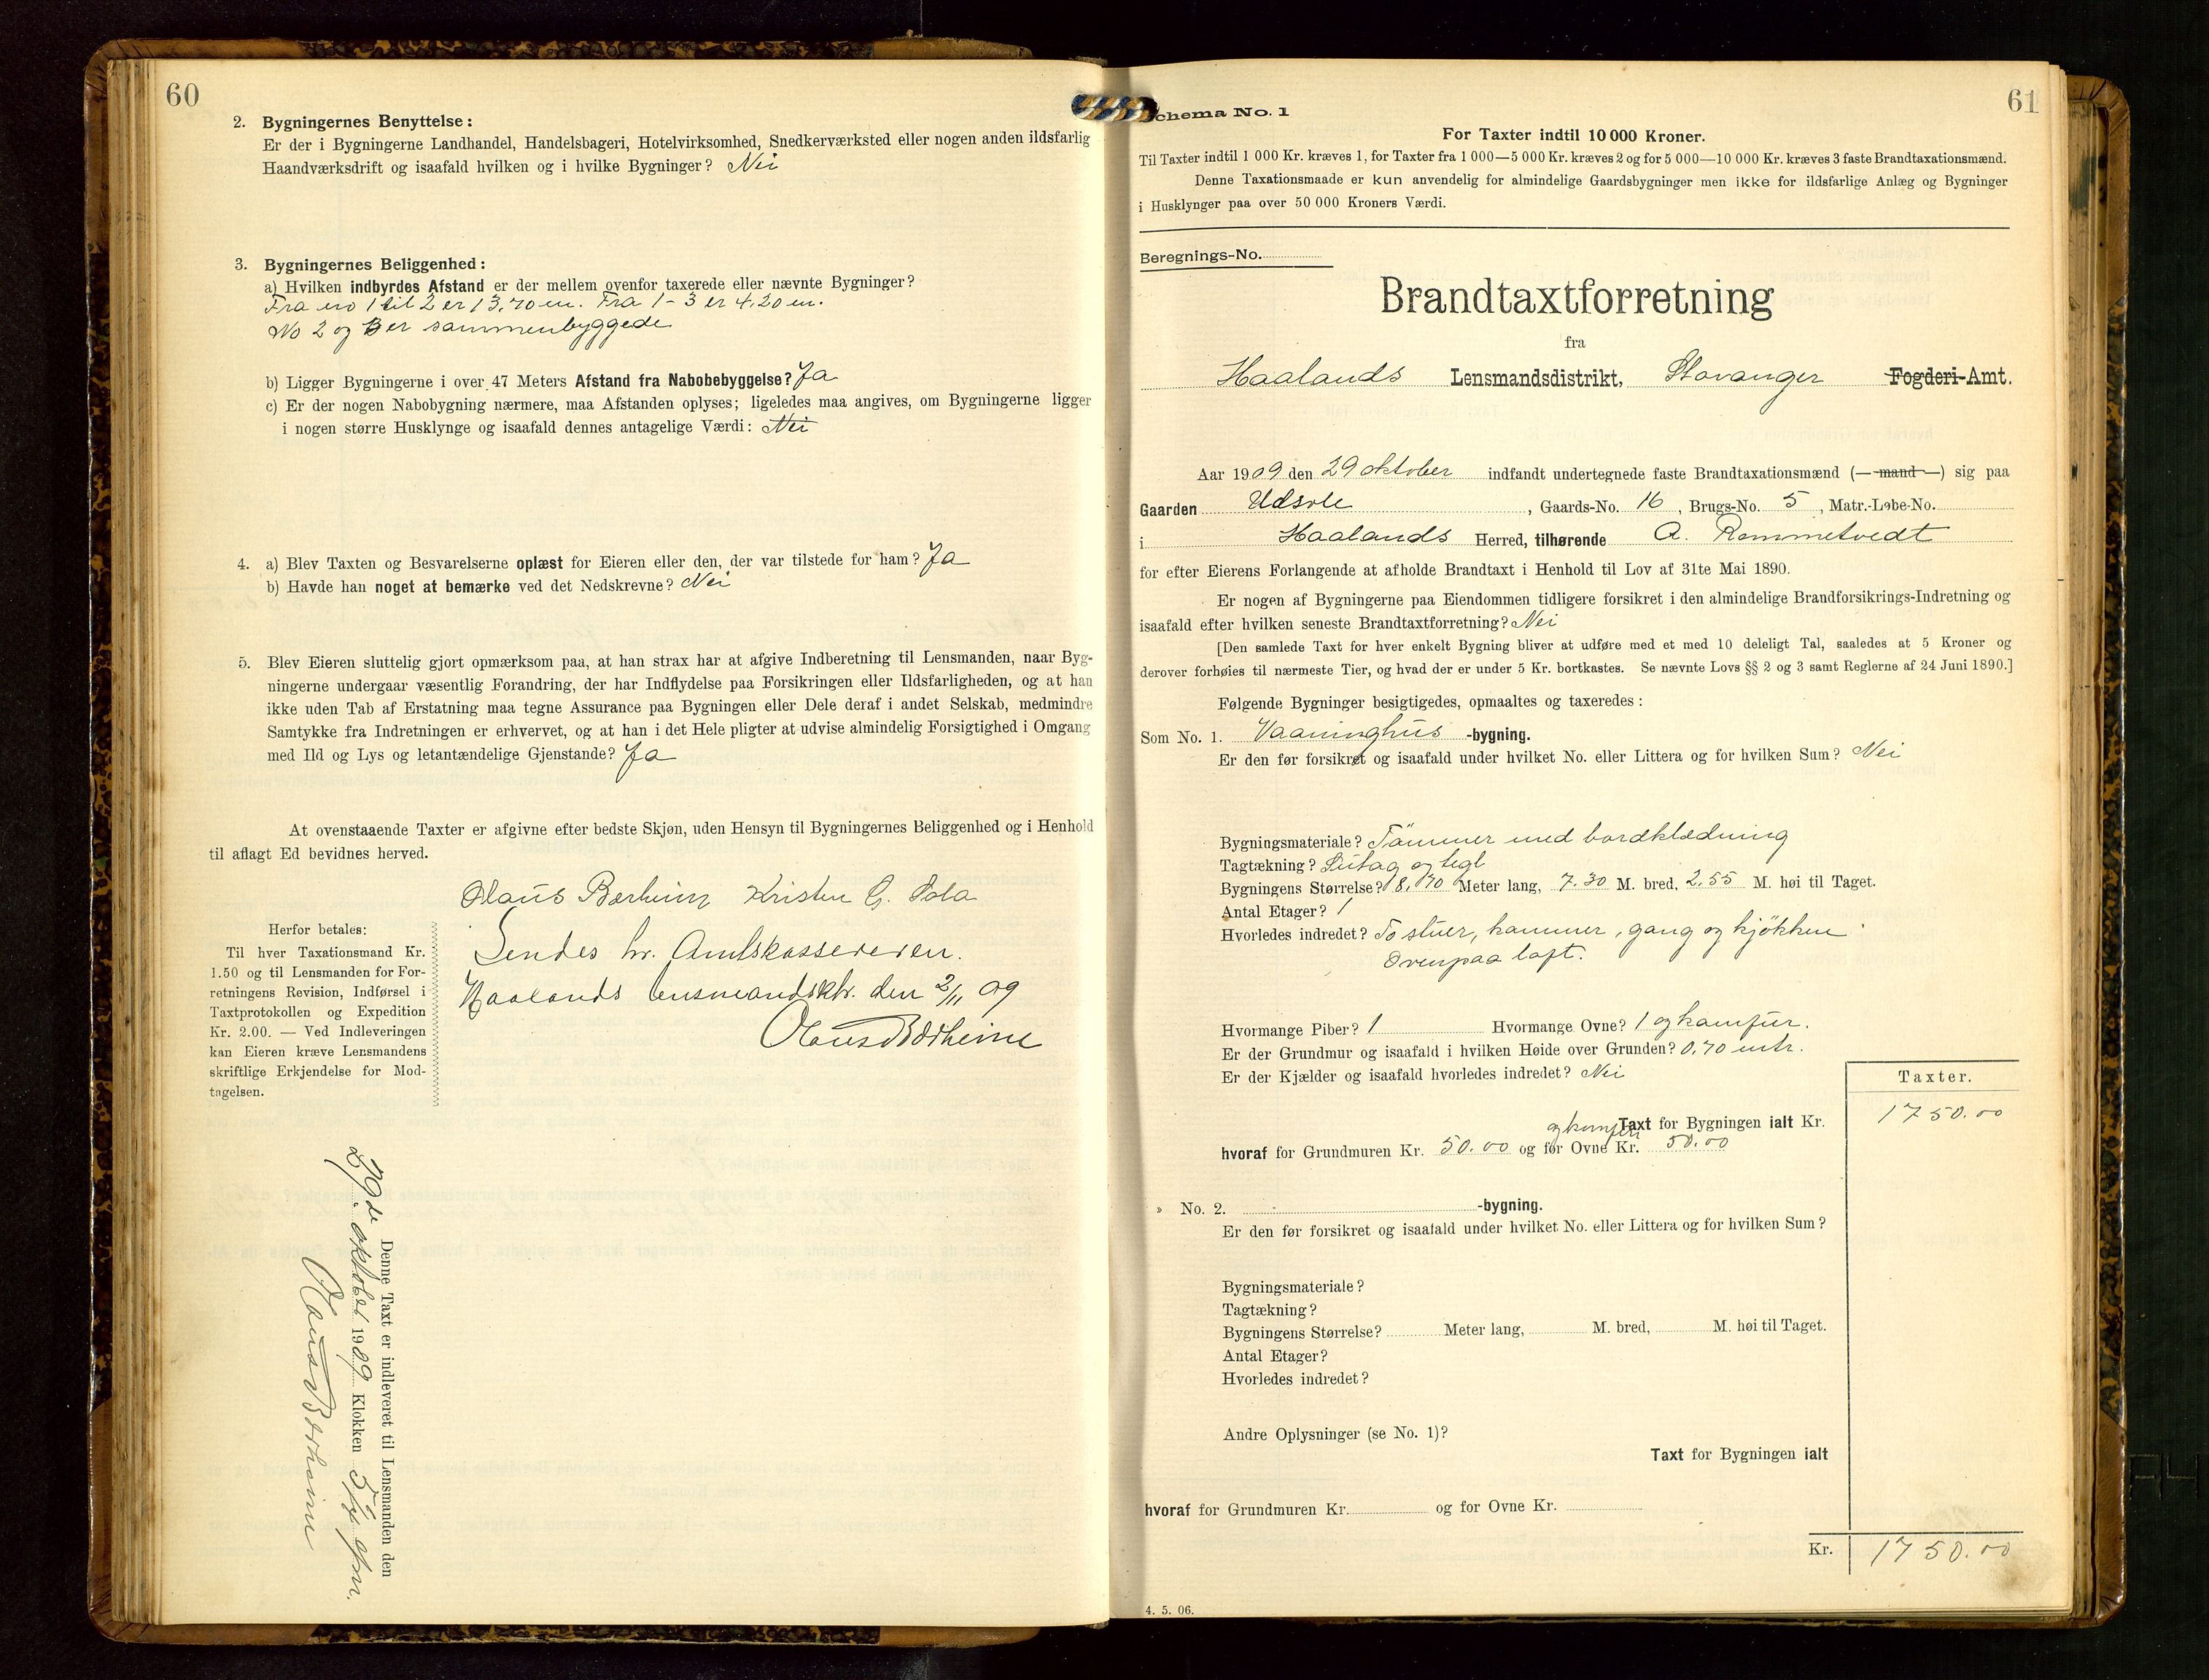 60
2. Bygningernes Benyttelse:
Er der i Bygningerne Landhandel, Handelsbageri, Hotelvirksomhed, Snedkerværksted eller nogen anden ildsfarlig
Haandværksdrift og isaafald hvilken og i hvilke Bygninger? Nei
3. Bygningernes Beliggenhed:
a) Hvilken indbyrdes Afstand er der mellem ovenfor taxerede eller nævnte Bygninger?
Fra no 1 til 2 er 13,70 m. Fra 1 - 3 er 4,20 m.
No 2 og 3 er sammenbyggede
b) Ligger Bygningerne i over 47 Meters Afstand fra Nabobebyggelse? Ja
c) Er der nogen Nabobygning nærmere, maa Afstanden oplyses; ligeledes maa angives, om Bygningerne ligger
i nogen større Husklynge og isaafald dennes antagelige Værdi: Nei
4. a) Blev Taxten og Besvarelserne oplæst for Eieren eller den, der var tilstede for ham? Ja
b) Havde han noget at bemærke ved det Nedskrevne? Nei
5. Blev Eieren sluttelig gjort opmærksom paa, at han strax har at afgive Indberetning til Lensmanden, naar Byg-
ningerne undergaar væsentlig Forandring, der har Indflydelse paa Forsikringen eller Ildsfarligheden, og at han
ikke uden Tab af Erstatning maa tegne Assurance paa Bygningen eller Dele deraf i andet Selskab, medmindre
Samtykke fra Indretningen er erhvervet, og at han i det Hele pligter at udvise almindelig Forsigtighed i Omgang
med Ild og Lys og letantændelige Gjenstande? Ja
At ovenstaaende Taxter er afgivne efter bedste Skjøn, uden Hensyn til Bygningernes Beliggenhed og i Henhold
til aflagt Ed bevidnes herved.
Olaus Bærheim Kristen G. Sola
Sendes hr. Amtskassereren.
Haalands lensmandsktr. den 2/11 09
Olaus Bærheim
Herfor betales:
Til hver Taxationsmand Kr.
1.50 og til Lensmanden for For-
retningens Revision, Indførsel i
Taxtprotokollen og Expedition
Kr. 2.00. — Ved Indleveringen
kan Eieren kræve Lensmandens
skriftlige Erkjendelse for Mod-
tagelsen.
Denne Taxt er indleveret til Lensmanden den
29de oktober 1909 Klokken 5 1/2 efm.
Olaus Bærheim
61
Schema No. 1
For Taxter indtil 10 000 Kroner.
Til Taxter indtil 1 000 Kr. kræves 1, for Taxter fra 1 000—5 000 Kr. kræves 2 og for 5 000—10 000 Kr. kræves 3 faste Brandtaxationsmænd.
Denne Taxationsmaade er kun anvendelig for almindelige Gaardsbygninger men ikke for ildsfarlige Anlæg og Bygninger
i Husklynger paa over 50 000 Kroners Værdi.
Beregnings-No.
Brandtaxtforretning
fra
Haalands Lensmandsdistrikt, Stavanger Fogderi-Amt.
Aar 1909 den 29 oktober indfandt undertegnede faste Brandtaxationsmænd (— mand —) sig paa
Gaarden Udsole, Gaards-No. 16, Brugs-No. 5, Matr.-Løbe-No.
i Haalands Herred, tilhørende A. Rommetvedt
for efter Eierens Forlangende at afholde Brandtaxt i Henhold til Lov af 31te Mai 1890.
Er nogen af Bygningerne paa Eiendommen tidligere forsikret i den almindelige Brandforsikrings-Indretning og
isaafald efter hvilken seneste Brandtaxtforretning? Nei
[Den samlede Taxt for hver enkelt Bygning bliver at udføre med et med 10 deleligt Tal, saaledes at 5 Kroner og
derover forhøies til nærmeste Tier, og hvad der er under 5 Kr. bortkastes. Se nævnte Lovs §§ 2 og 3 samt Reglerne af 24 Juni 1890.]
Følgende Bygninger besigtigedes, opmaaltes og taxeredes:
Som No. 1. Vaaninghus -bygning.
Er den før forsikret og isaafald under hvilket No. eller Littera og for hvilken Sum? Nei
Bygningsmateriale? Tömmer med bordklædning
Tagtækning? Sutag og tegl
Bygningens Størrelse? 8,70 Meter lang, 7.30 M. bred, 2.55 M. høi til Taget.
Antal Etager? 1
Hvorledes indredet? To stuer, kammer, gang og kjökken
Ovenpaa loft.
Hvormange Piber? 1 Hvormange Ovne? 1 og komfur.
Er der Grundmur og isaafald i hvilken Høide over Grunden? 0,70 mtr.
Er der Kjælder og isaafald hvorledes indredet? Nei
Taxter.
Taxt for Bygningen ialt Kr. 1750.00
og komfur
hvoraf for Grundmuren Kr. 50.00 og for Ovne Kr. 50.00
» No. 2. -bygning.
Er den før forsikret og isaafald under hvilket No. eller Littera og for hvilken Sum?
Bygningsmateriale?
Tagtækning?
Bygningens Størrelse? Meter lang, M. bred, M. høi til Taget.
Antal Etager?
Hvorledes indredet?
Andre Oplysninger (se No. 1)?
Taxt for Bygningen ialt
hvoraf for Grundmuren Kr. og for Ovne Kr.
Kr. 1750.00
4. 5. 06.